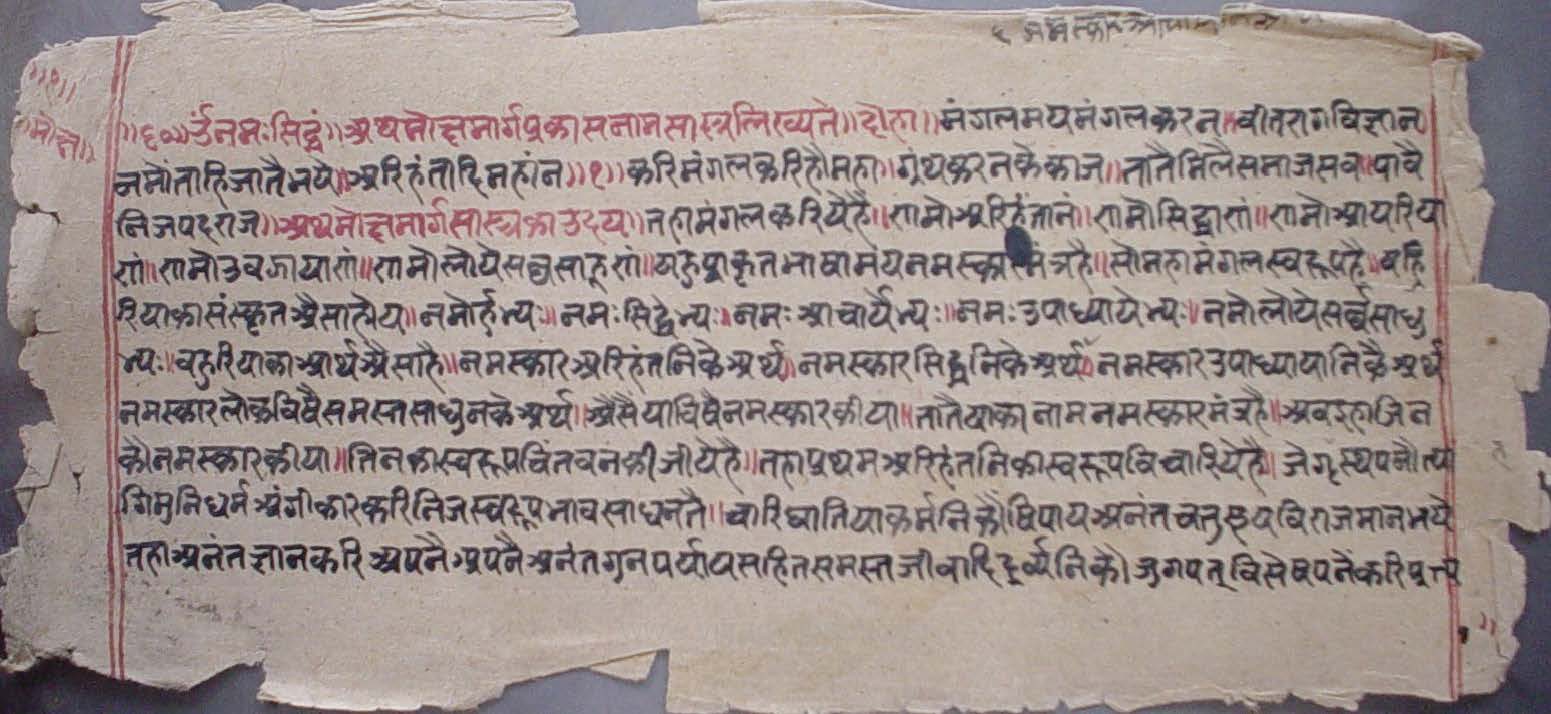 ६ नमस्कार
॥१॥
मोक्ष॥
॥६०॥ र्उनमःसिद्धं॥अथमोक्षमार्गप्रकासनामसास्त्रलिख्यते॥दोहा॥मंगलमयमंगलकरन॥वीतरागविज्ञान
नमोंताहिजातैभये॥अरिहंतादिमहांन॥१॥करिमंगलकरिहौंमहा॥ग्रंथकरनकेकाज॥तातैमिलैसमाजसव॥पावै
निजपदराज॥अथमोक्षमार्गसास्त्रकाउदय॥तहामंगलकरियेहै॥णमोअरिहंतानं॥णमोसिद्धाणं॥णमोआयरिया
णं॥णमोउवझायाणं॥णमोलोयेसव्वसाहूणं॥यहुप्राकृतभाषामयनमस्कारमंत्रहै॥सोमहामंगलस्वरूपहै॥वहु
रियाकासंस्कृतअैसाहोय॥नमोर्हद्भ्यः॥नमःसिद्धेभ्यः॥नमःआचार्येभ्यः॥नमःउपाध्यायेभ्यः॥नमोलोयेसर्व्वसाधु
भ्यः॥वहुरियाकाआर्थअैसाहै॥नमस्कारअरिहंतनिकेअर्थ॥नमस्कारसिद्धनिकेअर्थ॥नमस्कारउपाध्यायानिकैअर्थ
नमस्कारलोकविषैसमस्तसाधुनकेअर्थ॥अैसैयाविषैनमस्कारकीया॥तातैयाकानामनमस्कारमंत्रहै॥अवइहाजिन
कौनमस्कारकीया॥तिनकास्वरूपचिंतवनकीजीयेहै॥तहाप्रथमअरिहंतनिकास्वरूपविचारियेहै॥जेगृस्थपनौत्या
गिमुनिधर्मअंगीकारकरिनिजस्वरूपभावसाधनतै॥चारिघातियाकर्मनिकौंषिपायअनंतचतुष्टयविराजमानभये
तहाअनंतज्ञानकरिअपनैअपनैअनंतगुनपर्यायसहितसमस्तजीवादिद्रव्यनिकौंजुगपत्विसेषपनैंकरिप्रत्य